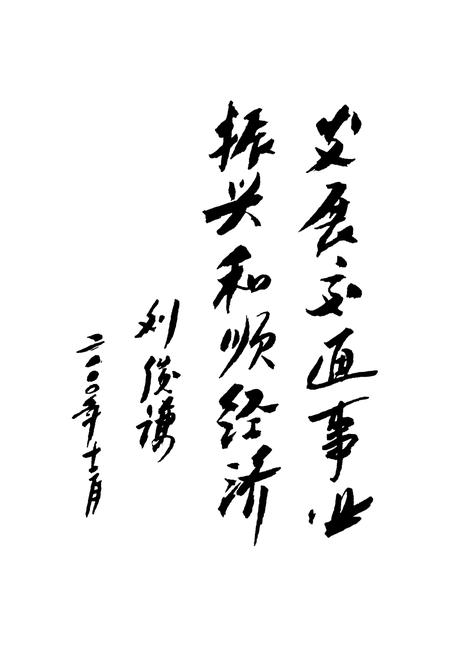 发展交通事业
振兴和顺经济
刘俊谦
二〇〇〇年十二月